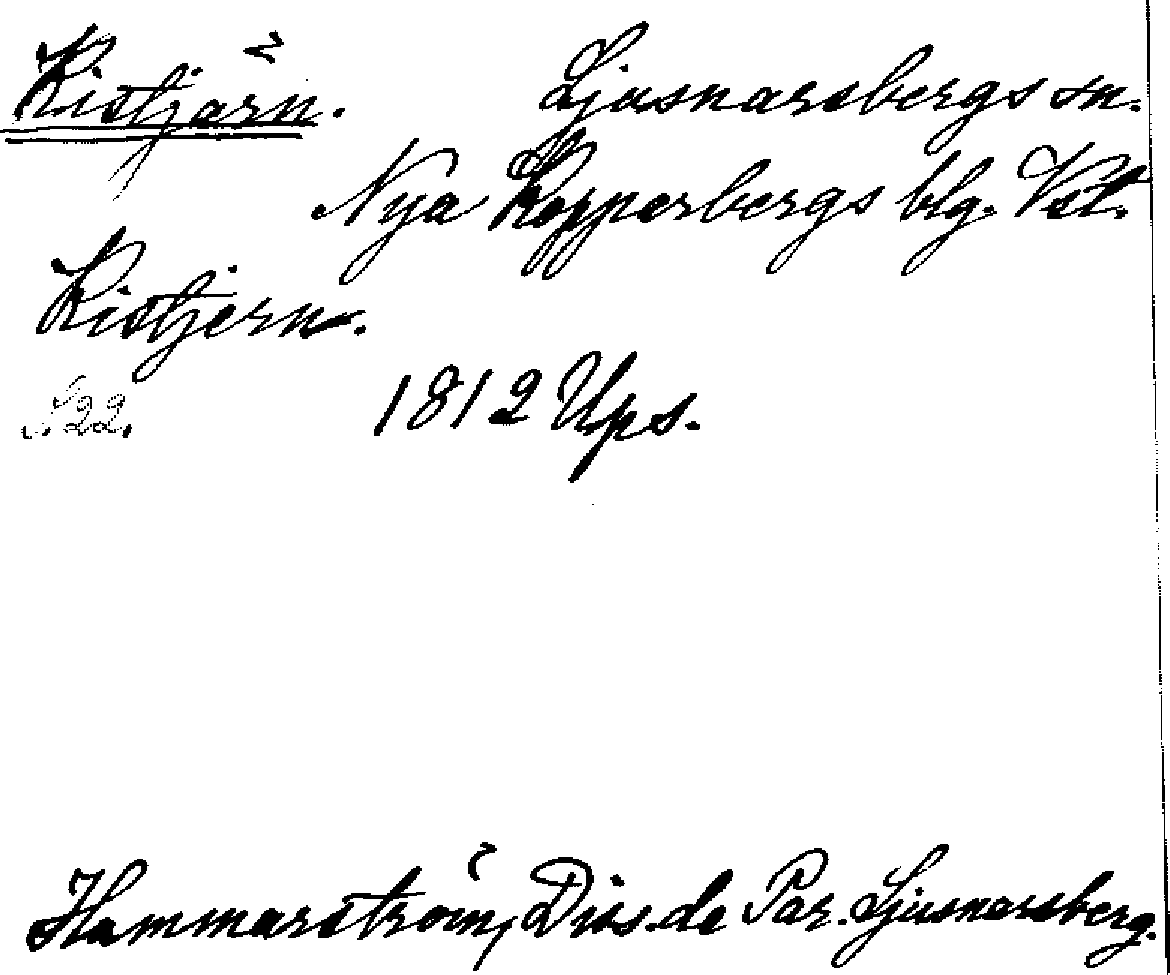 Kistjärn. Ljusnarsbergs sn.
Nya Kopparbergs blg. Vstl.
Kistjern.
S. 22. 1812 Ups.
Hammarström, Diss. de Par. Ljusnarsberg.